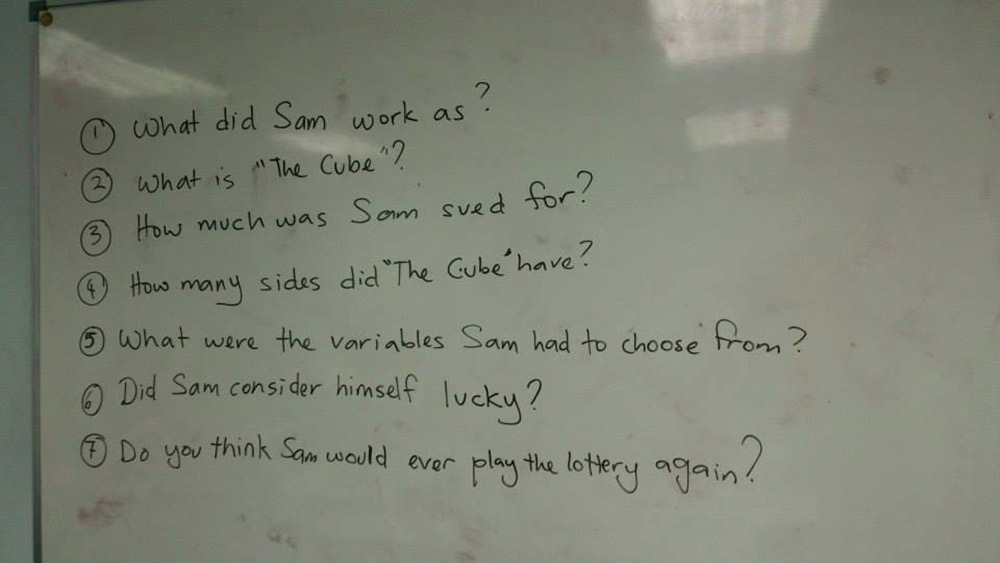 ① What did Sam work as?
② What is "The Cube"?
③ How much was Sam sued for?
④ How many sides did "The Cube" have?
⑤ What were the variables Sam had to choose from?
⑥ Did Sam consider himself lucky?
⑦ Do you think Sam would ever play the lottery again?